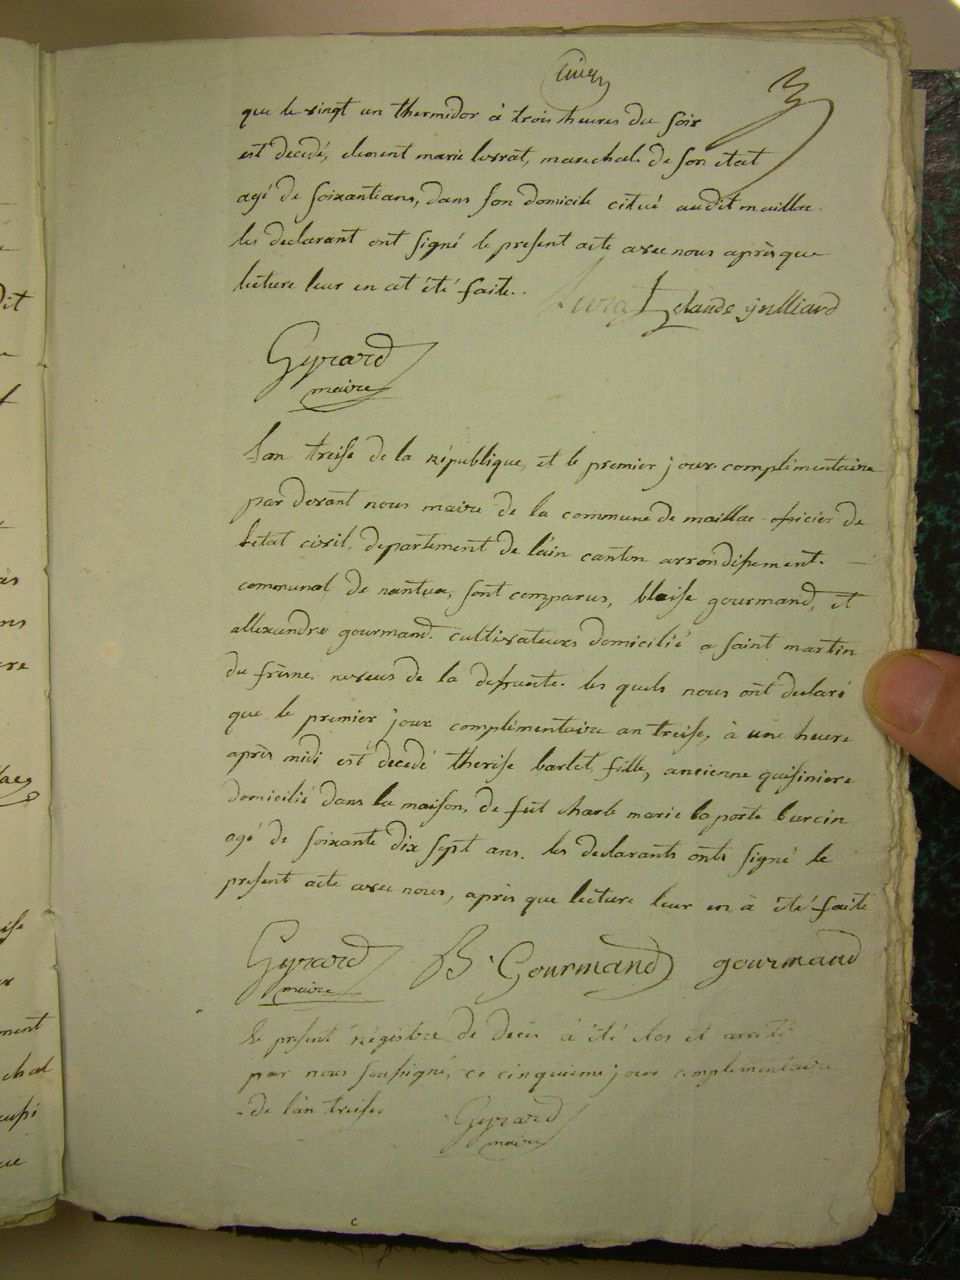 3
que le vingt un thermidor à trois heures du soir
est decedé, clement marie levrat, marechal de son etat
agé de soixantians, dans son domicile citué audit maillac
les declarant ont signé le present acte avec nous après que
lecture leur en at été faite.
Levrat claude juilliard
Gyrard
maire
l'an treise de la république, et le premier jour complémentaire
par devant nous maire de la commune de maillac officier de
l'etat civil, departement de l'ain canton arrondisement
communal de nantua, sont comparus, blaise gourmand, et
allexandre gourmand cultivateurs domicilié a saint martin
du frêne neveus de la defunte. les quels nous ont declaré
que le premier jour complémentaire an treise, à une heure
après midi est decedé therise barlet, fille, ancienne quisiniere
domicilié dans la maison, de fût charle marie la porte burcin
agé de soixante dix sept ans. les declarants onts signé le
present acte avec nous, après que lecture leur en à été faite
Gyrard B. Gourmand gourmand
maire
le present régistre de decès à été clos et arreté
par nous sousigné, ce cinquieme jour complémentaire
de l'an treise
Gyrard
maire